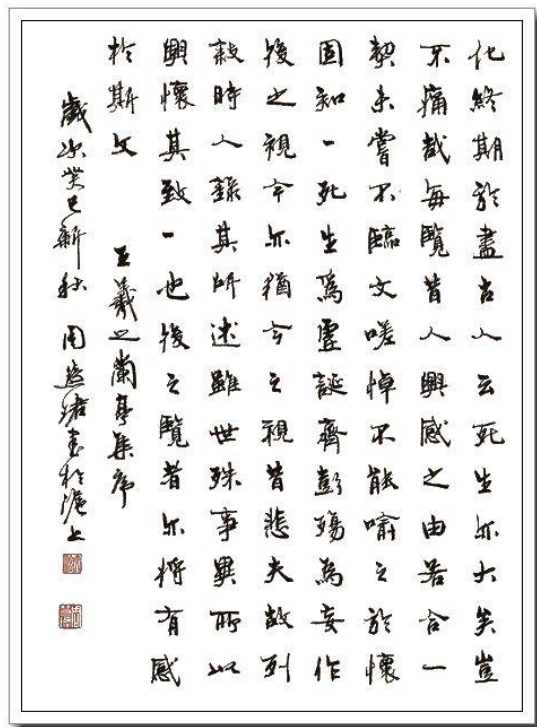 化終期於盡古人云死生亦大矣豈
不痛哉每覽昔人興感之由若合一
契未嘗不臨文嗟悼不能喻之於懷
固知一死生爲虛誕齊彭殤為妄作
後之視今亦猶今之視昔悲夫故列
敘時人錄其所述雖世殊事異所以
興懷其致一也後之覽者亦將有感
於斯文 王羲之蘭亭集序
歲次癸巳新秋 周書於滬上